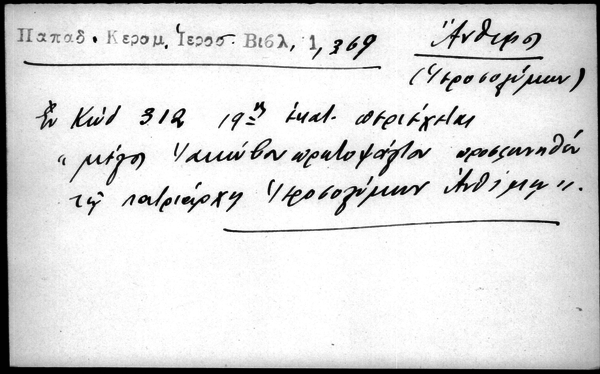 Παπαδ. Κεραμ. Ἱεροσ. Βιβλ, 1, 369
Ἄνθιμος
(Ἱεροσολύμων)
Ἐν Κώδ 312 19ης ἑκατ. περιέχεται
« μέγα Ἰακώβου πρωτοψάλτου προσφωνηθὲν
τῷ πατριάρχῃ Ἱεροσολύμων Ἀνθίμῳ ».